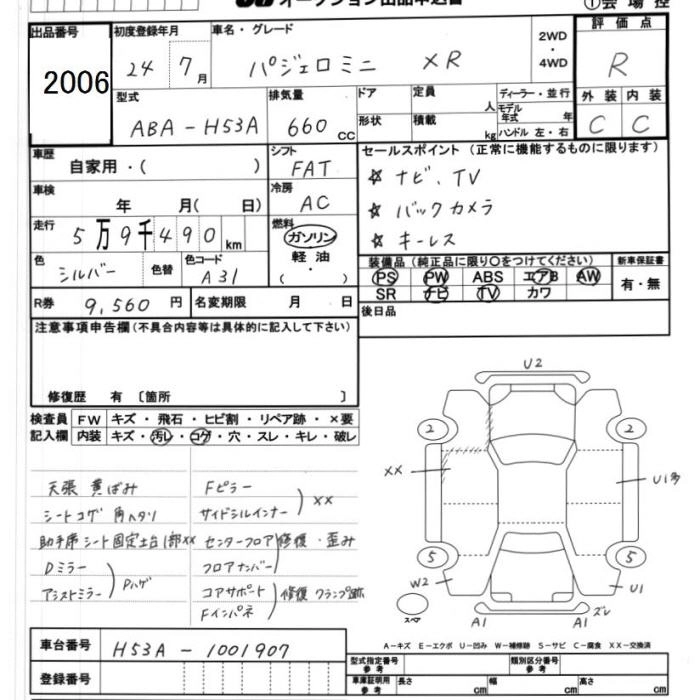 オークション出品申込書
①会場控
出品番号 初度登録年月 車名・グレード 2WD・4WD 評価点
2006 24 7月 パジェロミニ XR R
型式 排気量 ドア 定員 人 ディーラー・並行 外装 内装
ABA-H53A 660cc 形状 積載 kg モデル年式 年 ハンドル 左・右 C C
車歴 自家用・( ) シフト FAT セールスポイント(正常に機能するものに限ります)
車検 年 月( 日) 冷房 AC ☆ ナビ、TV
走行 5万9千490km 燃料 ガソリン 軽油 ( ・ ) ☆ バックカメラ
☆ キーレス
色 シルバー 色替 色コード A31 装備品(純正品に限り○をつけてください) 新車保証書
PS PW ABS エアB AW 有・無
R券 9,560円 名変期限 月 日 SR ナビ TV カワ
注意事項申告欄(不具合内容等は具体的に記入して下さい) 後日品
修復歴 有〔箇所 〕
検査員 FW キズ・飛石・ヒビ割・リペア跡・×要
記入欄 内装 キズ・汚レ・コゲ・穴・スレ・キレ・破レ
天張 黄ばみ
シートコゲ 角ヘタリ
助手席シート固定土台1部××
Dミラー
アシストミラー Pハゲ
Fピラー
サイドシルインナー ××
センターフロア
フロアナンバー 修復・歪み
コアサポート
Fインパネ 修復 クランプ跡
U2
2 2
XX U1多
5 5
W2 U1
スペア A1 A1 ズレ
A-キズ E-エクボ U-凹み W-補修跡 S-サビ C-腐食 XX-交換済
車台番号 H53A-1001907
型式指定番号 参考 類別区分番号 参考
登録番号 車庫証明用 参考 長さ cm 幅 cm 高さ cm